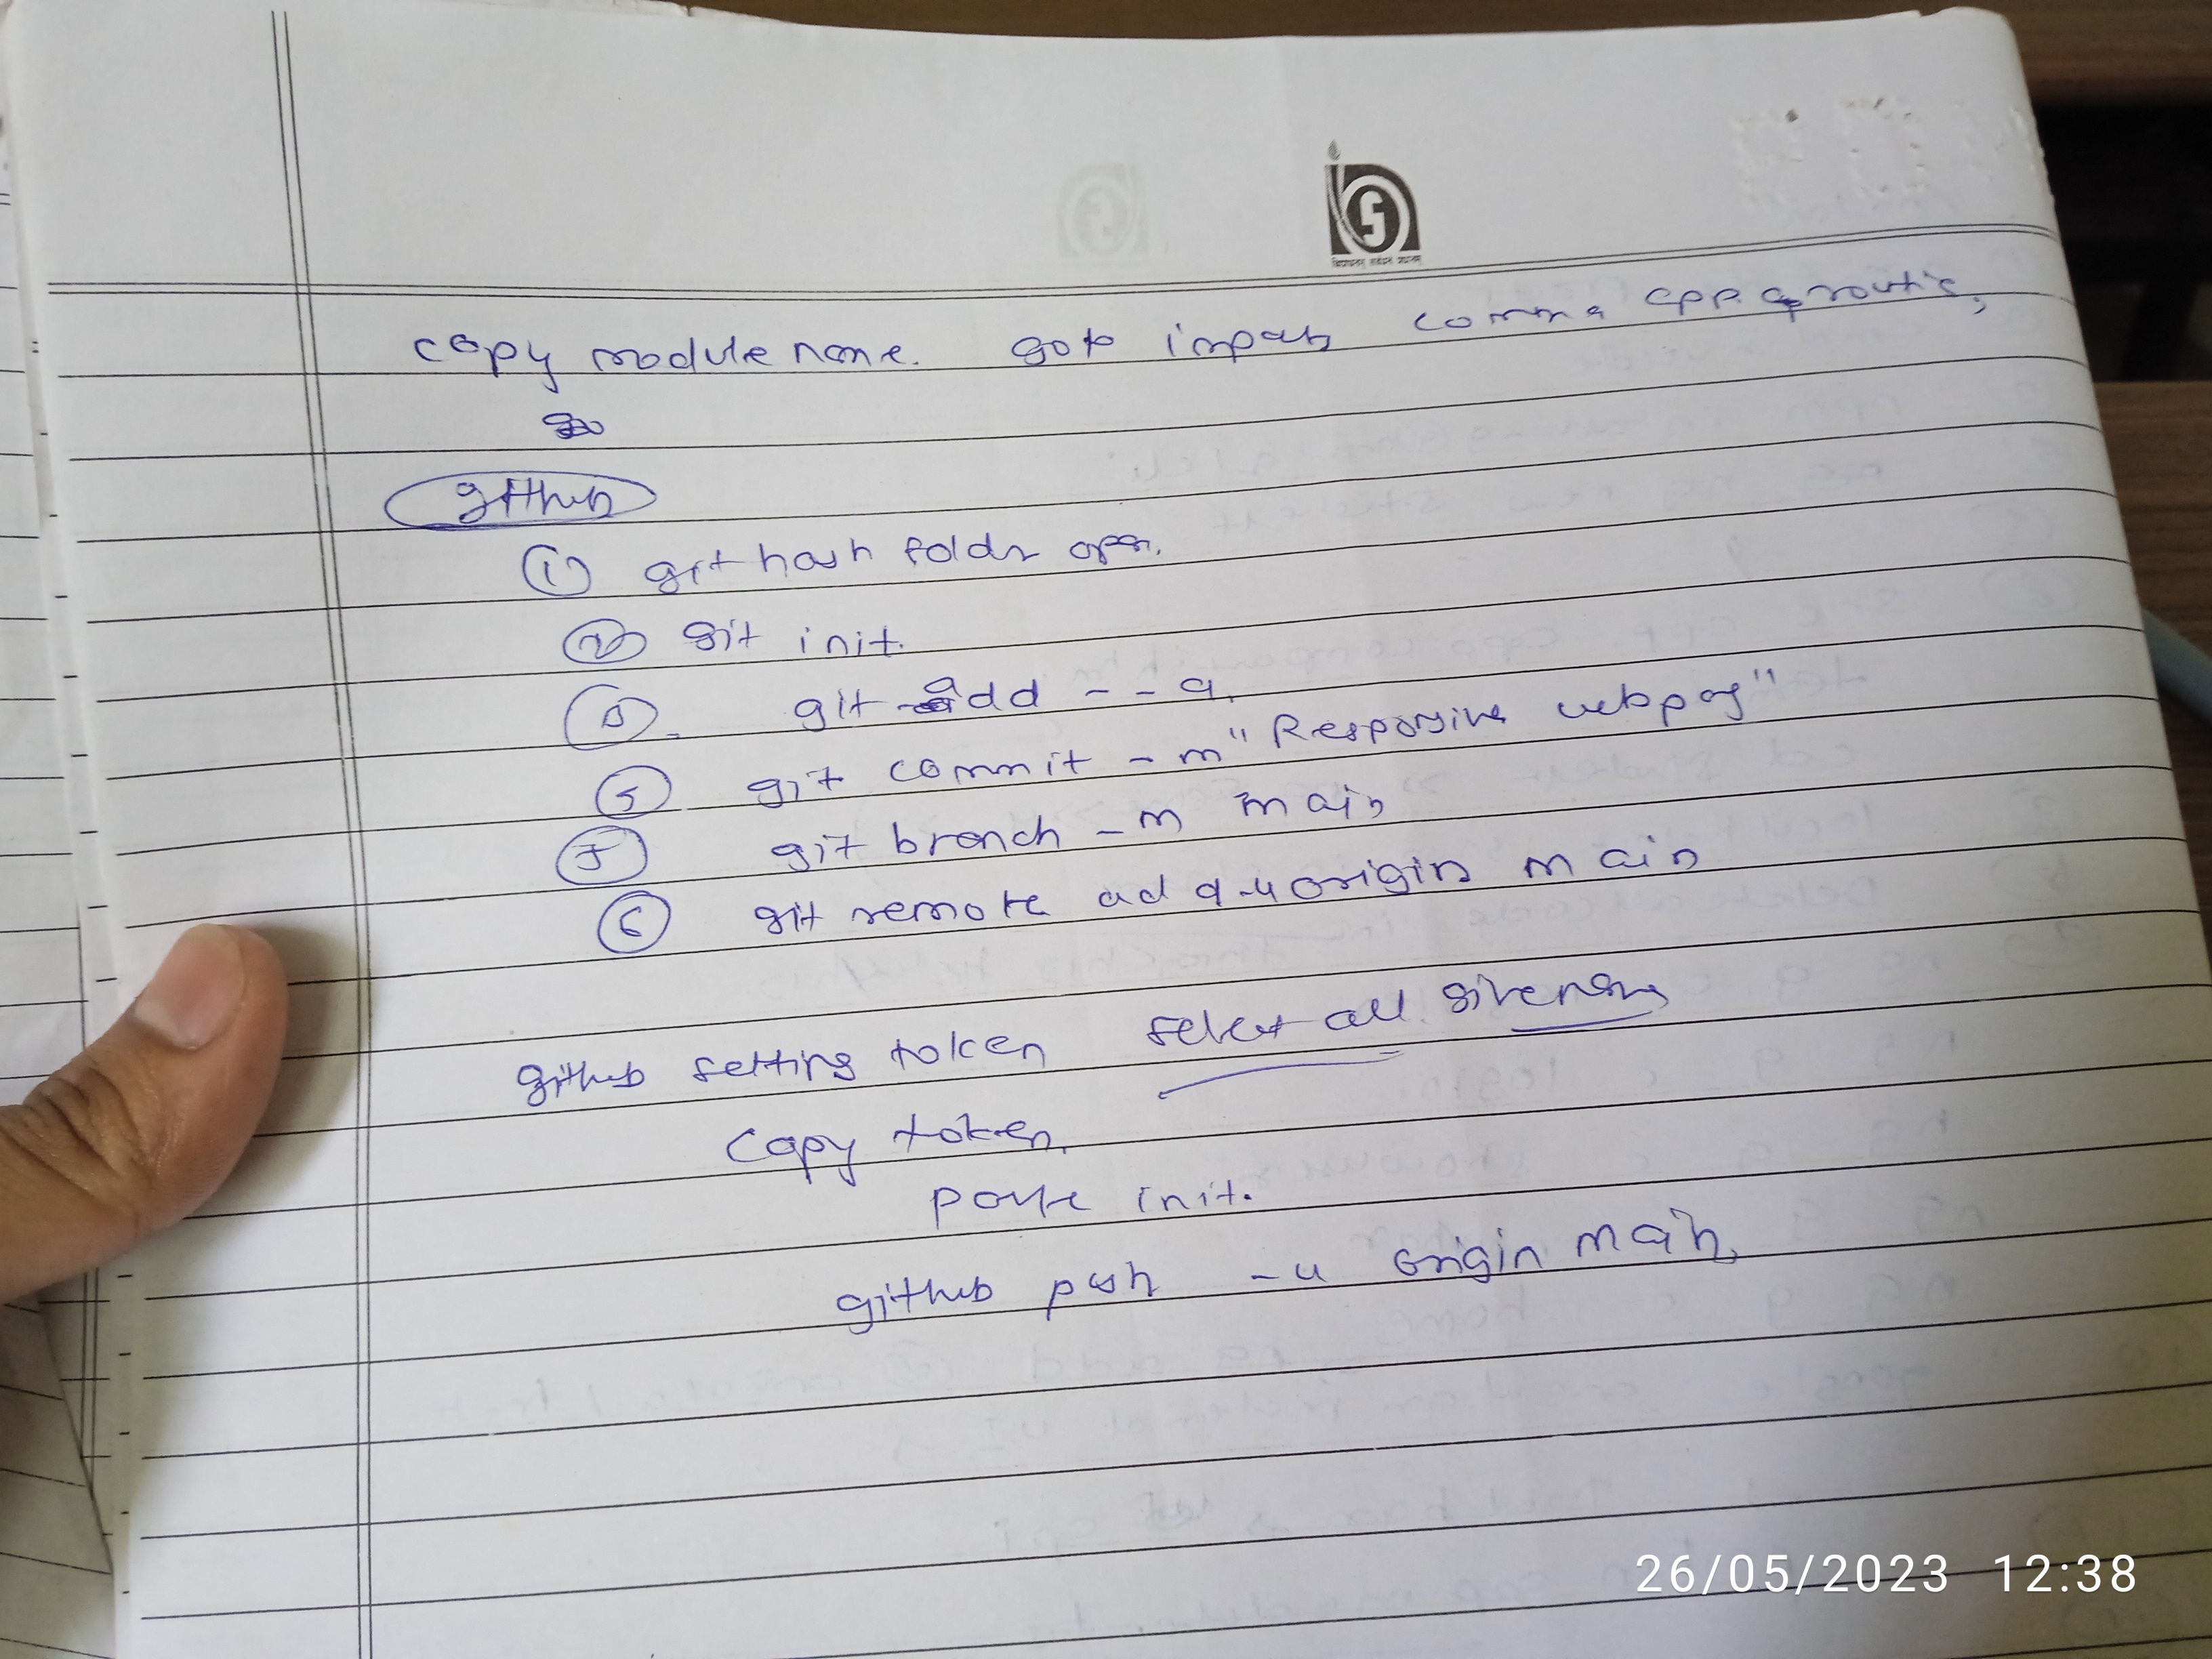 copy module name. goto import comma app. routis,
github
① git hash foldr open.
② git init.
③. git add -- a.
⑤ git commit -m "Responsive webpag"
git branch -m main
⑥ git remote add -u origin main
github setting token select all give name
copy token.
paste init.
github push -u origin main,
26/05/2023 12:38